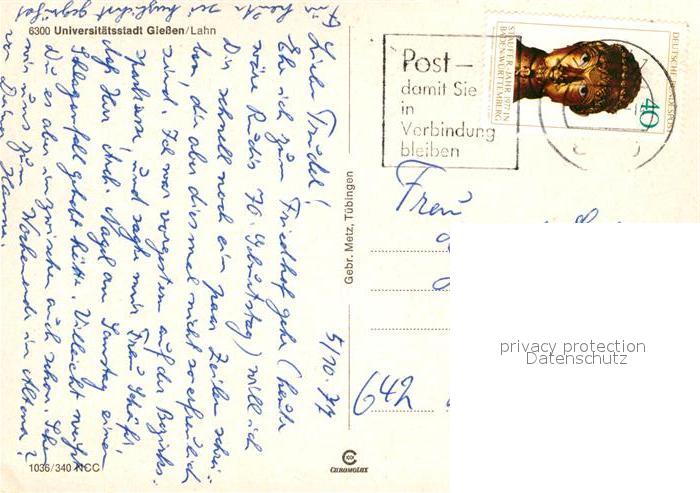 6300 Universitätsstadt Gießen/Lahn
5/10.77
Liebe Trudel!
Ehe ich zum Friedhof gehe (heute
wäre Rudis 70. Geburtstag) will ich
Dir schnell noch ein paar Zeilen schrei-
ben, die aber diesmal nicht so erfreulich
sind. Ich war vorgestern auf der Bezirks-
sparkasse, und sagte mir Frau Schäfer,
daß Herr Arch. Nagel am Samstag einen
Schlaganfall gehabt hätte. Vielleicht weißt
Du es aber inzwischen auch schon. Sehen
wir uns zum Wochenende in Altena?
von Deiner Hanna.
Für heute sei herzlichst gegrüßt
1036/340 NCC
Gebr. Metz, Tübingen
CHROMOLUX
Post –
damit Sie
in
Verbindung
bleiben
DEUTSCHE BUNDESPOST
40
STAUFER-JAHR 1977 IN
BADEN-WÜRTTEMBERG
Frau
642
privacy protection
Datenschutz